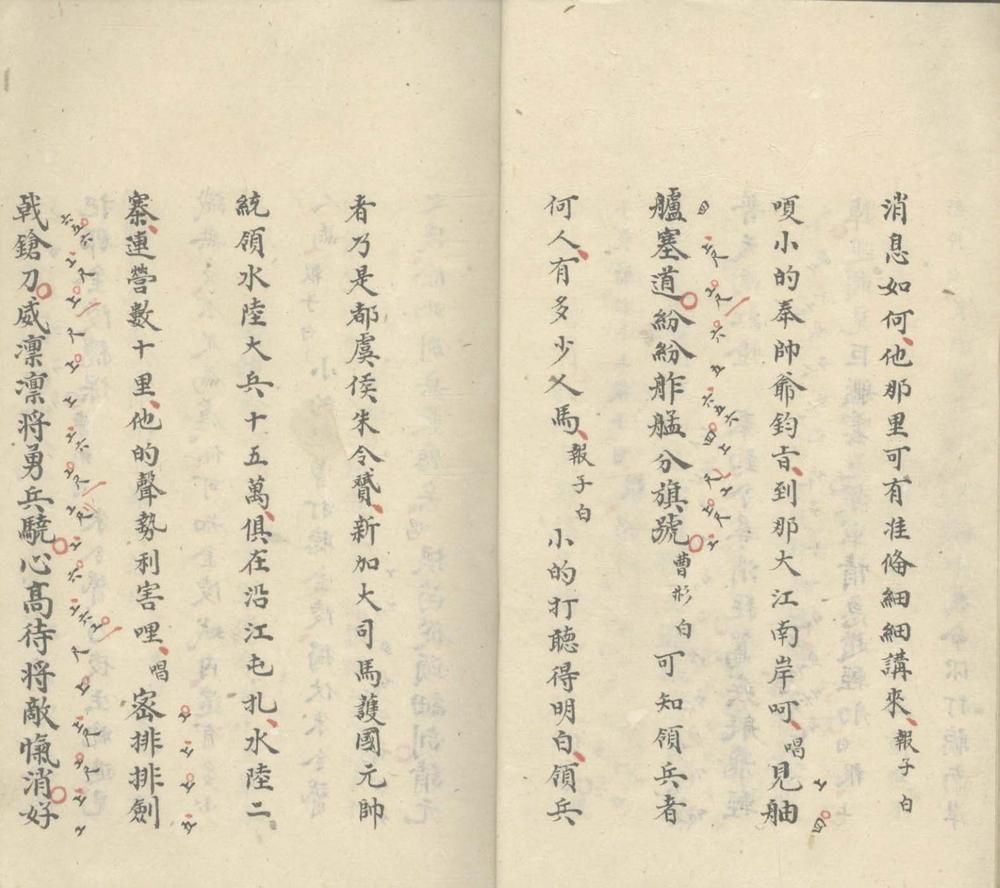 消息如何他那里可有准俻細細講來報子白
嗄小的奉帥爺鈞㫖到那大江南岸呵唱見舳
艫塞道紛紛舴艋分旗號曹彬白可知領兵者
何人有多少人馬報子白小的打聽得明白領兵
者乃是都虞侯朱令贇新加大司馬護國元帥
統領水陸大兵十五萬俱在沿江屯扎水陸二
寨連營數十里他的聲勢利害哩唱密排排劍
戟鎗刀威凛凛將勇兵驍心髙待將敵愾消好